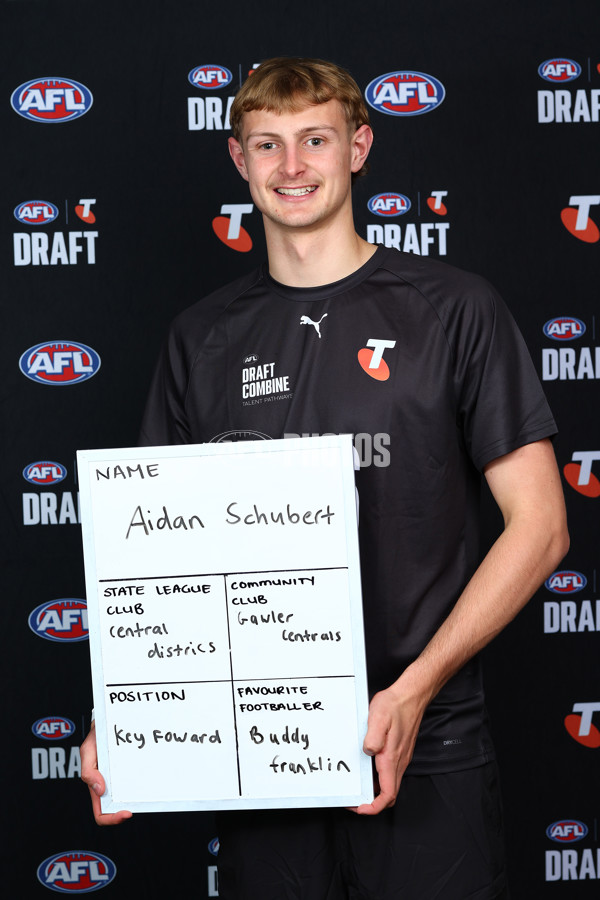 AFL
AFL
AFL
DRAFT
T
DRAFT
AFL T
DRAFT
T
AFL T
DRAFT
T
AFL
AFL
DRAFT
AFL
DRAFT
COMBINE
TALENT PATHWAY
T
AFL
DRAFT
T
AFL
DRAFT
AFL
AFL
DRAFT
T
AFL
DRAFT
AFL
AFL
DRAFT
PHOTOS
NAME
Aidan Schubert
STATE LEAGUE
CLUB
Central
districs
COMMUNITY
CLUB
Gawler
Centrals
POSITION
Key Foward
FAVOURITE
FOOTBALLER
Buddy
franklin